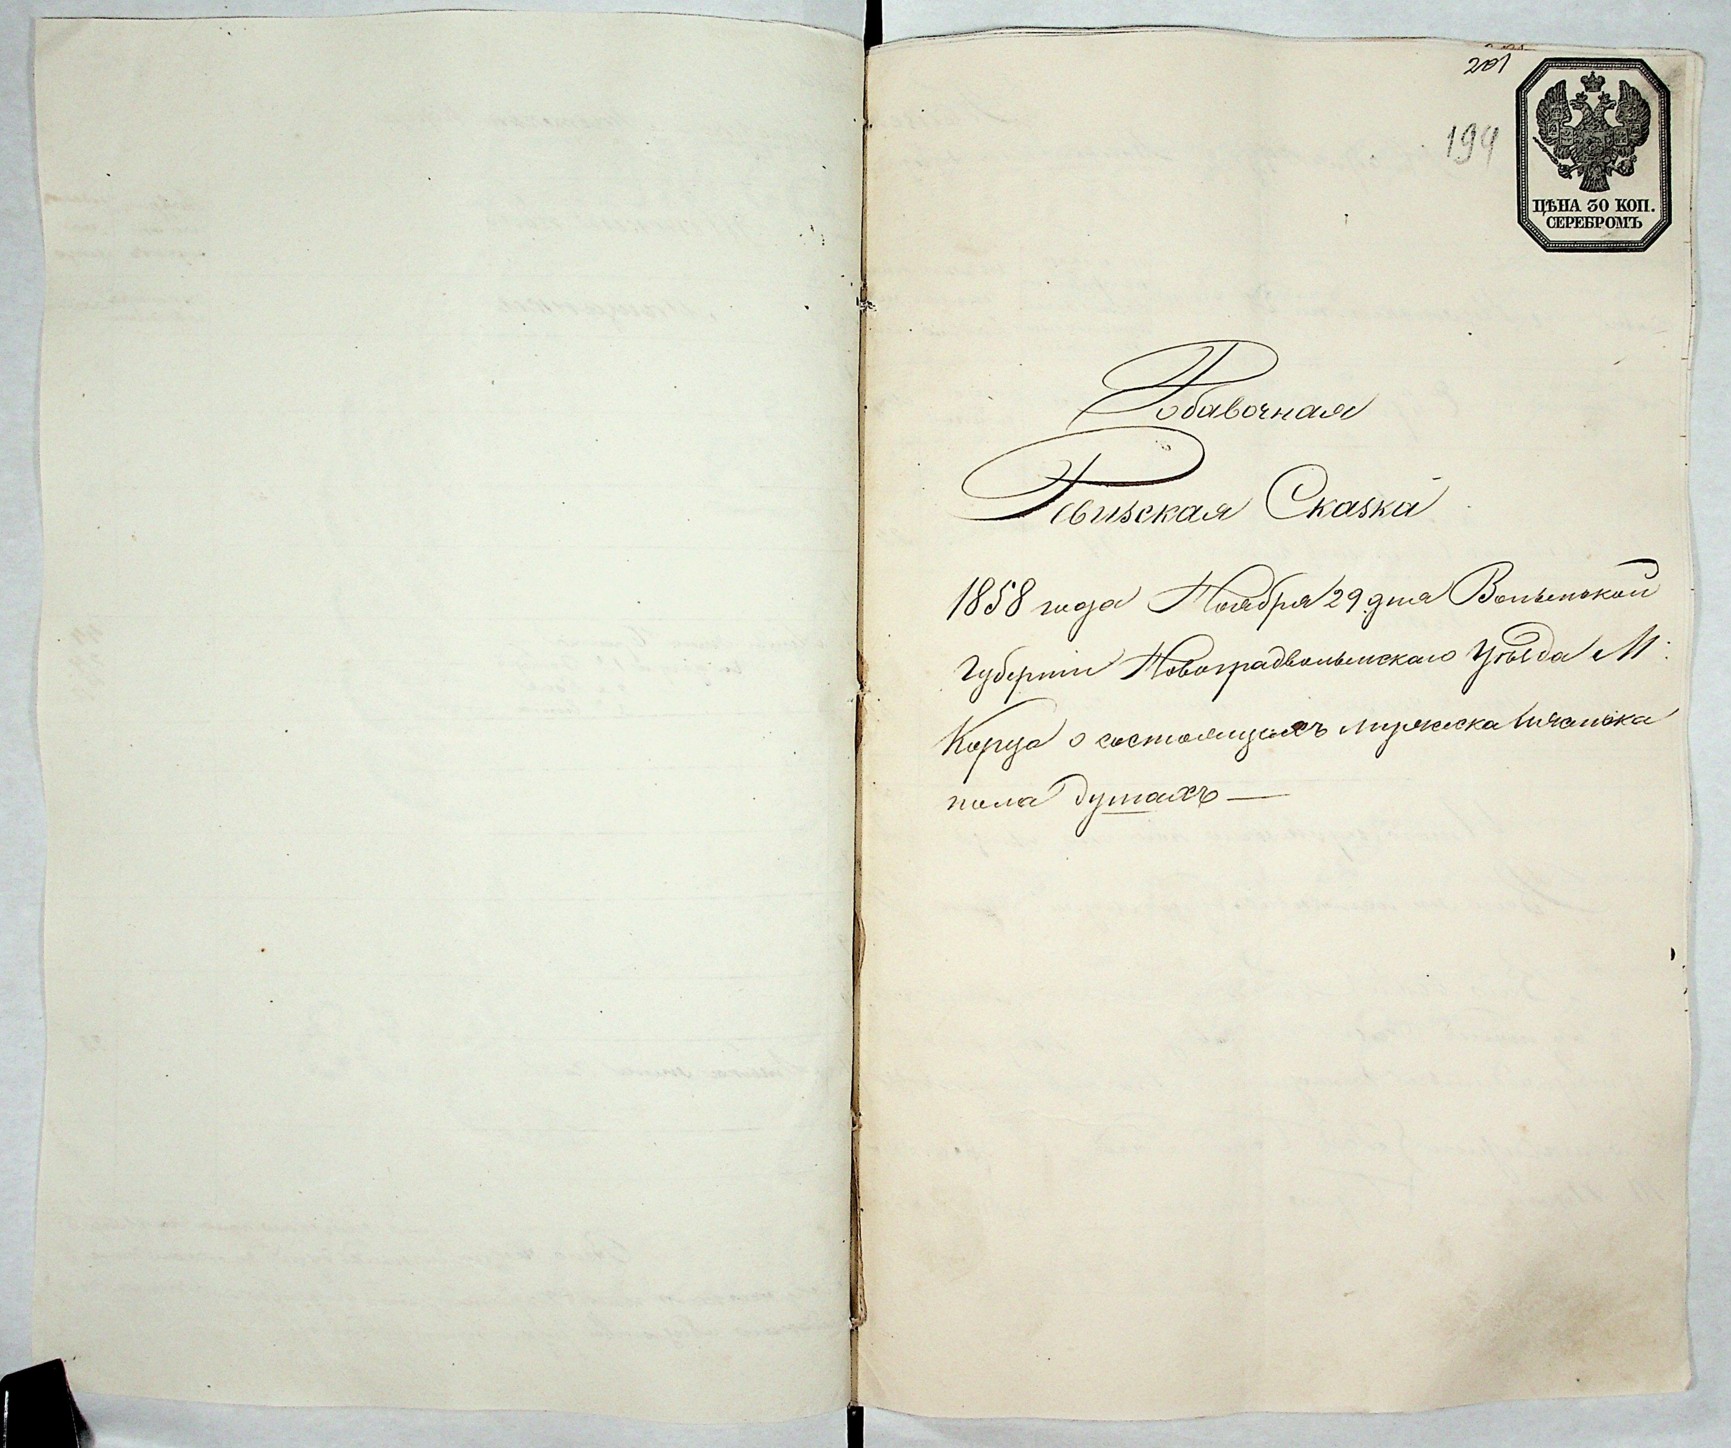 201
194
ЦѢНА 30 КОП.
СЕРЕБРОМЪ
Добавочная
Ревизская Сказка
1858 года Ноября 29 дня Волынской
Губернии Новоградволынскаго Уѣзда М:
Корца о состоящихъ мужеска и женска
пола душахъ —